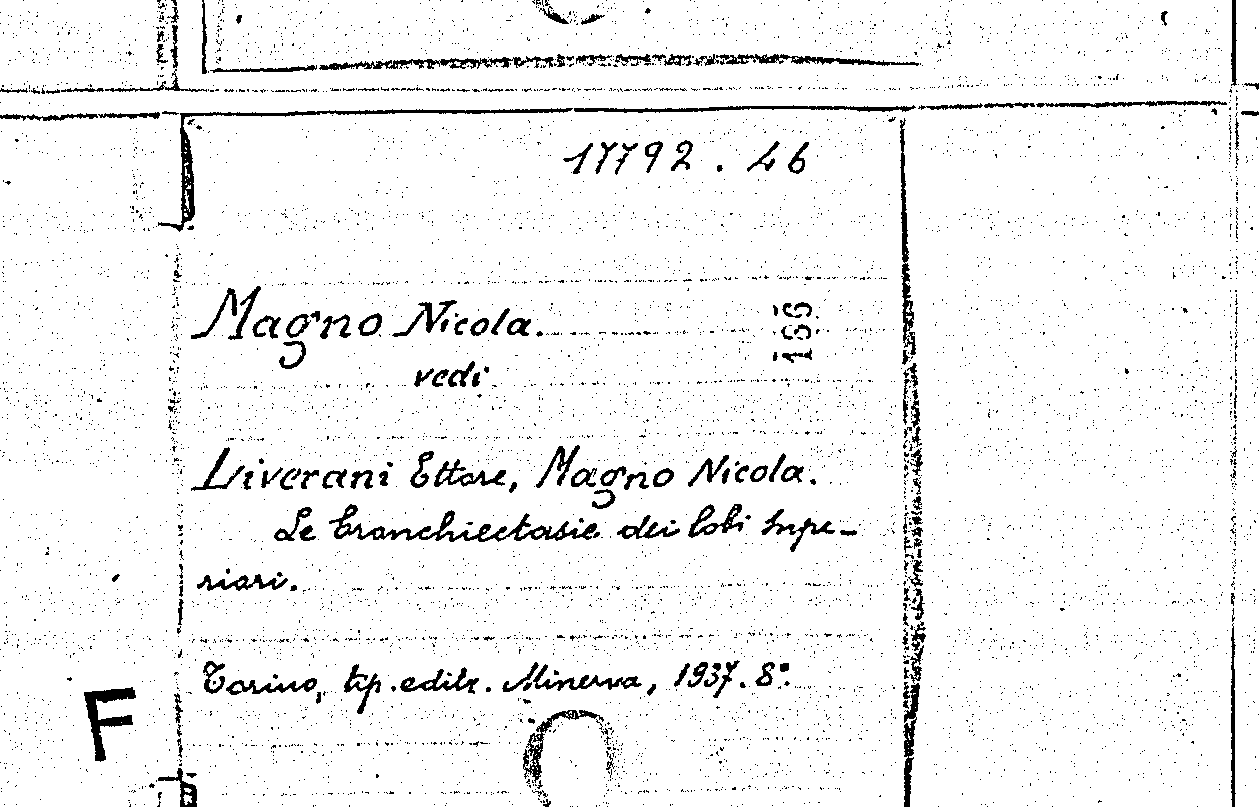 17792.46
Magno Nicola.
166
vedi
Liverani Ettore, Magno Nicola.
Le bronchiectasie dei lobi supe-
riori.
Torino, tip. editr. Minerva, 1937. 8°.
F